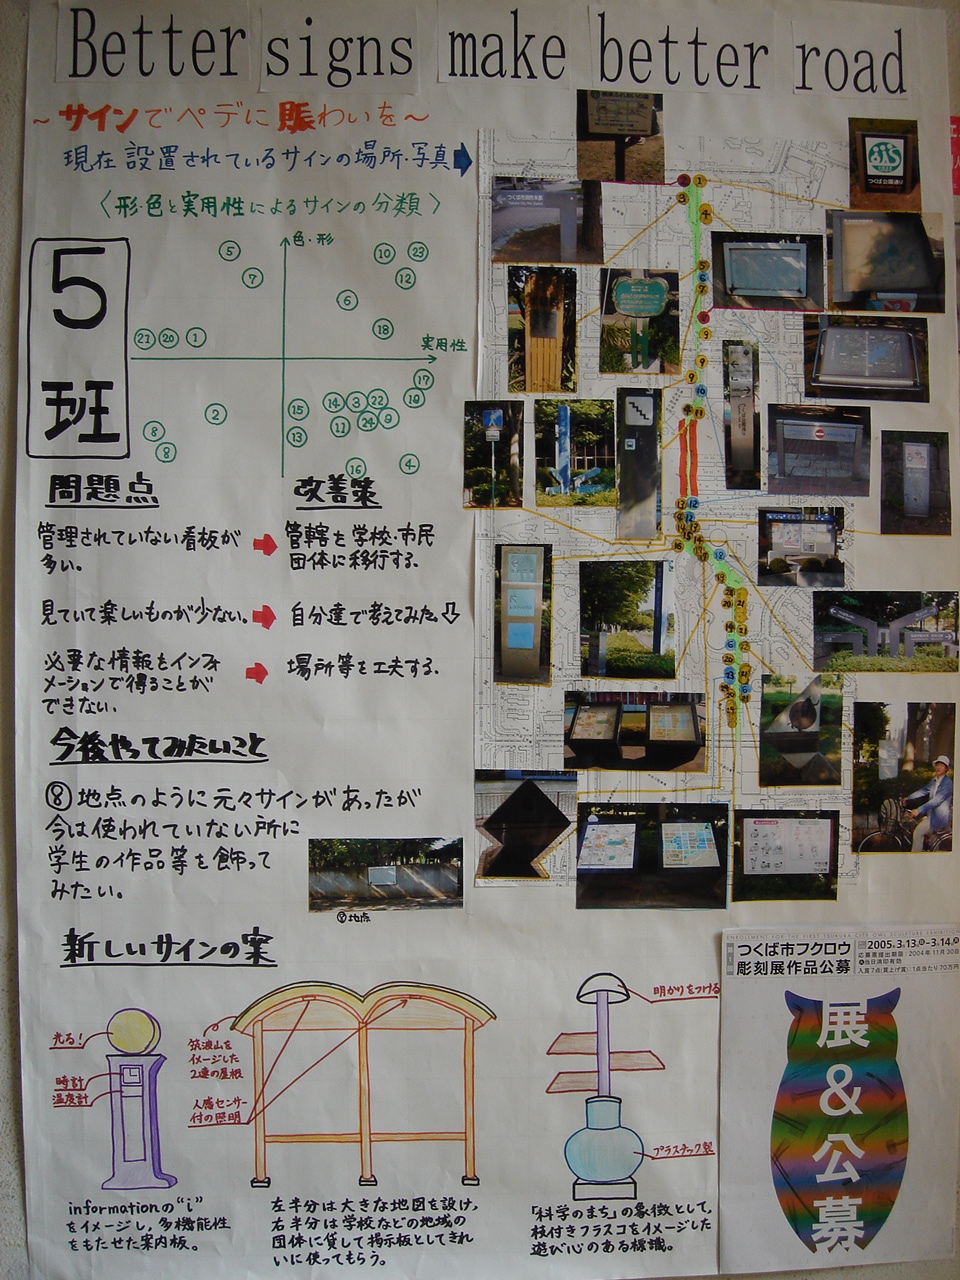 Better signs make better road
～サインでペデに賑わいを～
現在設置されているサインの場所・写真
〈形・色と実用性によるサインの分類〉
5班
色・形
実用性
⑤ ⑩ ㉓
⑦ ⑫
⑥
⑱
㉑ ⑳ ①
⑰
⑮ ⑭ ③ ㉒
②
⑧ ⑬ ⑪ ㉔ ⑨
⑧
⑯ ④
問題点
改善策
管理されていない看板が
多い。
管轄を学校・市民
団体に移行する。
見ていて楽しいものが少ない。
自分達で考えてみた。
必要な情報をインフォ
メーションで得ることが
できない。
場所等を工夫する。
今後やってみたいこと
⑧地点のように元々サインがあったが
今は使われていない所に
学生の作品等を飾って
みたい。
⑧地点
新しいサインの案
光る!
時計
温度計
informationの"i"
をイメージし,多機能性
をもたせた案内板。
筑波山を
イメージした
2連の屋根
人感センサー
付の照明
左半分は大きな地図を設け,
右半分は学校などの地域の
団体に貸して掲示板としてきれ
いに使ってもらう。
明かりをつける
プラスチック製
「科学のまち」の象徴として,
枝付きフラスコをイメージした
遊び心のある標識。
つくば公園通り
ENROLLMENT FOR THE FIRST TSUKUBA CITY OWL SCULPTURE EXHIBITION
つくば市フクロウ
彫刻展作品公募
2005.3.13日-3.14月
応募票提出期限:2004年11月30日
当日消印有効
入賞7点(買上げ賞):1点当たり70万円
展&公募